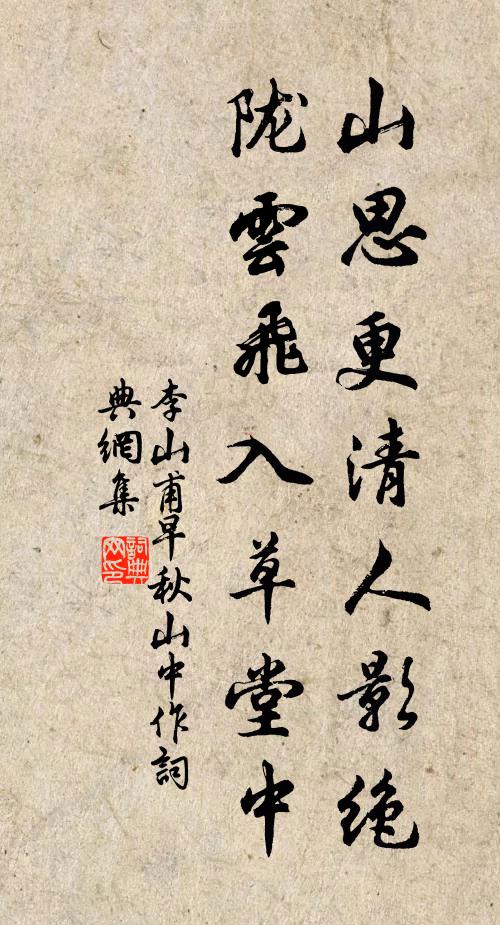 山思更清人影绝
陇雲飛入草堂中
李山甫早秋山中作詞
典網集
詞典網印